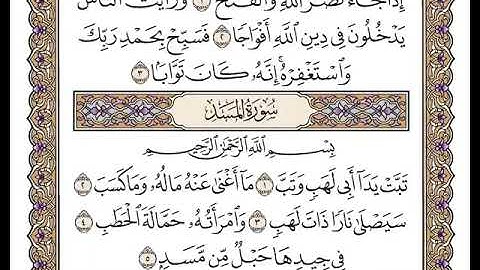 إِذَا جَآءَ نَصْرُ ٱللَّهِ وَٱلْفَتْحُ ١ وَرَأَيْتَ ٱلنَّاسَ
يَدْخُلُونَ فِى دِينِ ٱللَّهِ أَفْوَاجًا ٢ فَسَبِّحْ بِحَمْدِ رَبِّكَ
وَٱسْتَغْفِرْهُ إِنَّهُۥ كَانَ تَوَّابًۢا ٣
سُورَةُ المَسَد
بِسْمِ ٱللَّهِ ٱلرَّحْمَٰنِ ٱلرَّحِيمِ
تَبَّتْ يَدَآ أَبِى لَهَبٍ وَتَبَّ ١ مَآ أَغْنَىٰ عَنْهُ مَالُهُۥ وَمَا كَسَبَ ٢
سَيَصْلَىٰ نَارًا ذَاتَ لَهَبٍ ٣ وَٱمْرَأَتُهُۥ حَمَّالَةَ ٱلْحَطَبِ ٤
فِى جِيدِهَا حَبْلٌ مِّن مَّسَدٍۭ ٥